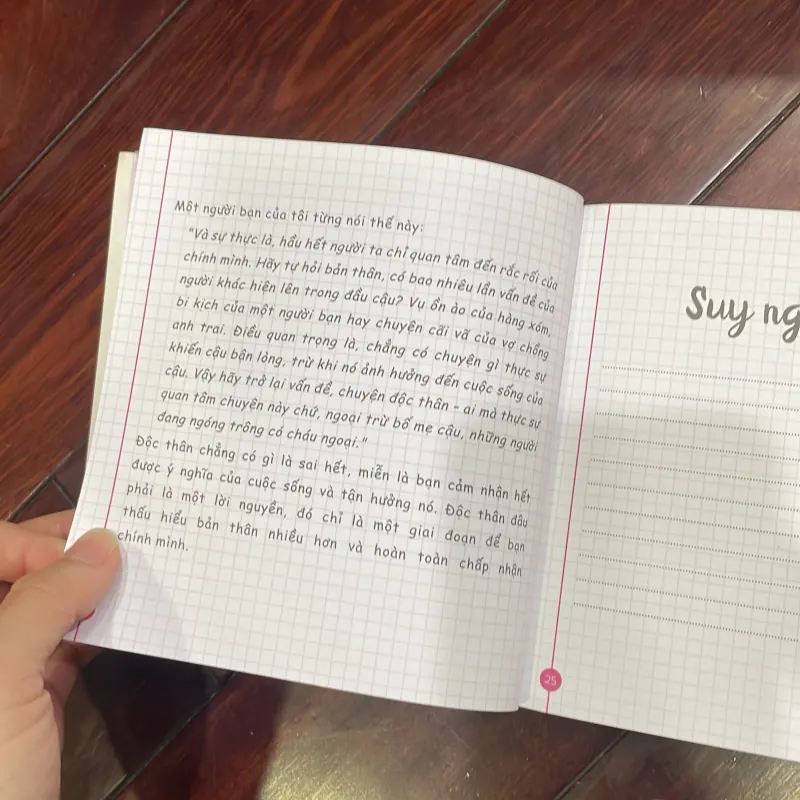 Một người bạn của tôi từng nói thế này:
"Và sự thực là, hầu hết người ta chỉ quan tâm đến rắc rối của
chính mình. Hãy tự hỏi bản thân, có bao nhiêu lần vấn đề của
người khác hiện lên trong đầu cậu? Vụ ồn ào của hàng xóm,
bi kịch của một người bạn hay chuyện cãi vã của vợ chồng
anh trai. Điều quan trọng là, chẳng có chuyện gì thực sự
khiến cậu bận lòng, trừ khi nó ảnh hưởng đến cuộc sống của
cậu. Vậy hãy trở lại vấn đề, chuyện độc thân - ai mà thực sự
quan tâm chuyện này chứ, ngoại trừ bố mẹ cậu, những người
đang ngóng trông có cháu ngoại."
Độc thân chẳng có gì là sai hết, miễn là bạn cảm nhận hết
được ý nghĩa của cuộc sống và tận hưởng nó. Độc thân đâu
phải là một lời nguyền, đó chỉ là một giai đoạn để bạn
thấu hiểu bản thân nhiều hơn và hoàn toàn chấp nhận
chính mình.
Suy ng
25